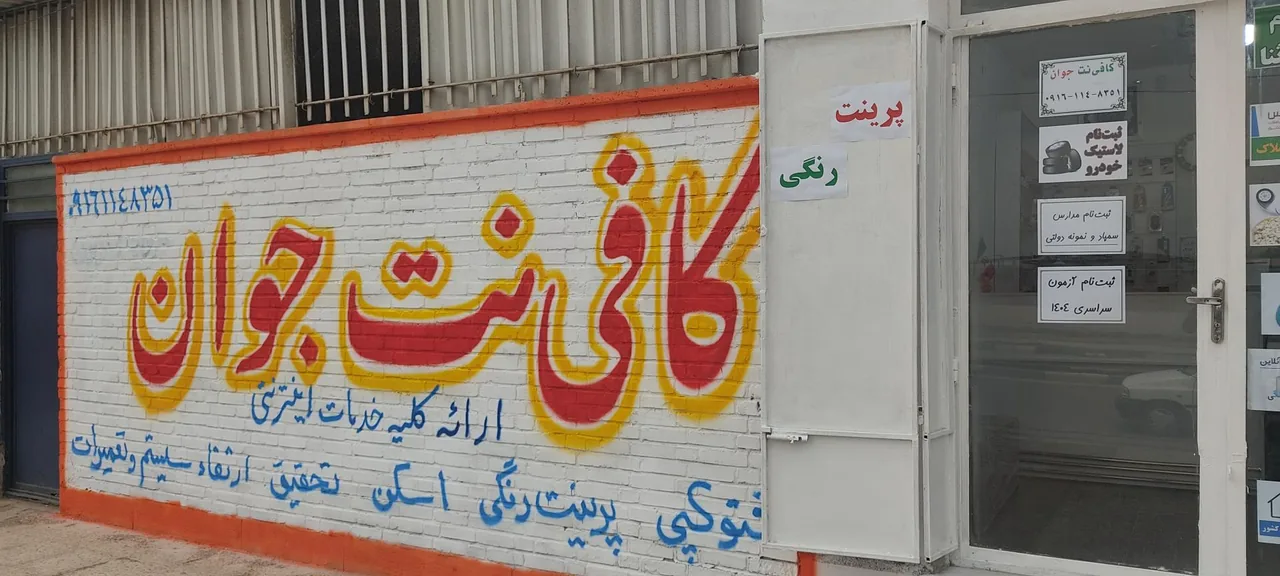 ۹۱۶۱۱۴۸۳۵۱
کافی نت جوان
ارائه کلیه خدمات اینترنتی
فتوکپی پرینت رنگی اسکن تحقیق ارتقاء سیستم و تعمیرات
پرینت
رنگی
کافی‌نت جوان
۰۹۱۶-۱۱۴-۸۳۵۱
ثبت‌نام
لاستیک
خودرو
ثبت‌نام مدارس
سمپاد و نمونه دولتی
ثبت‌نام آزمون
سراسری ۱۴۰۴
کشور